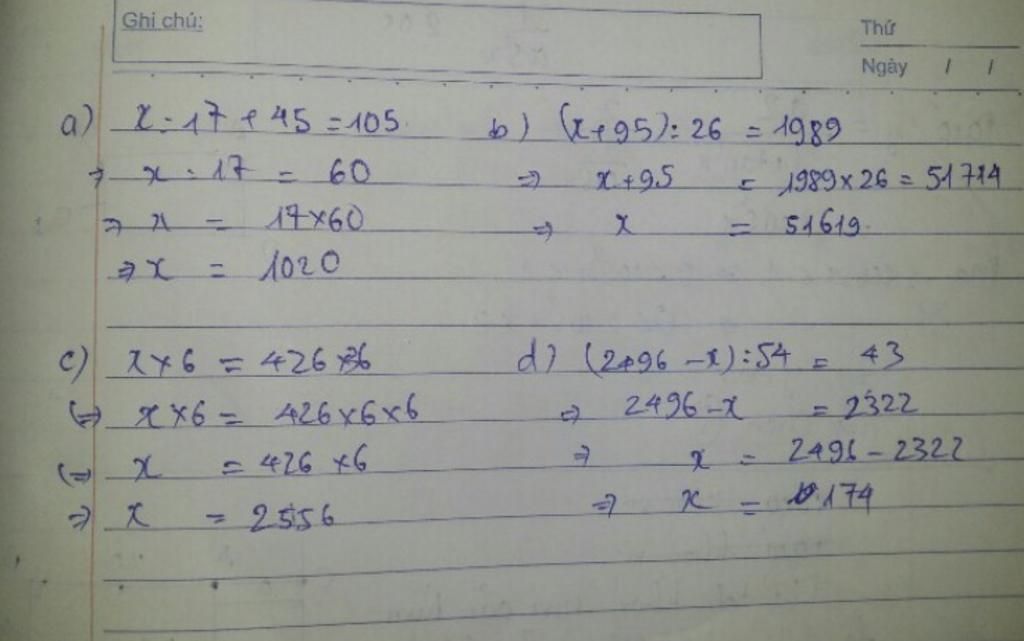 Ghi chú:
Thứ
Ngày / /
a) x : 17 + 45 = 105
⇒ x : 17 = 60
⇒ x = 17 × 60
⇒ x = 1020
b) (x + 95) : 26 = 1989
⇒ x + 95 = 1989 × 26 = 51714
⇒ x = 51619
c) x × 6 = 426 × 36
(⇒ x × 6 = 426 × 6 × 6
(⇒ x = 426 × 6
⇒ x = 2556
d) (2496 - x) : 54 = 43
⇒ 2496 - x = 2322
⇒ x = 2496 - 2322
⇒ x = 174